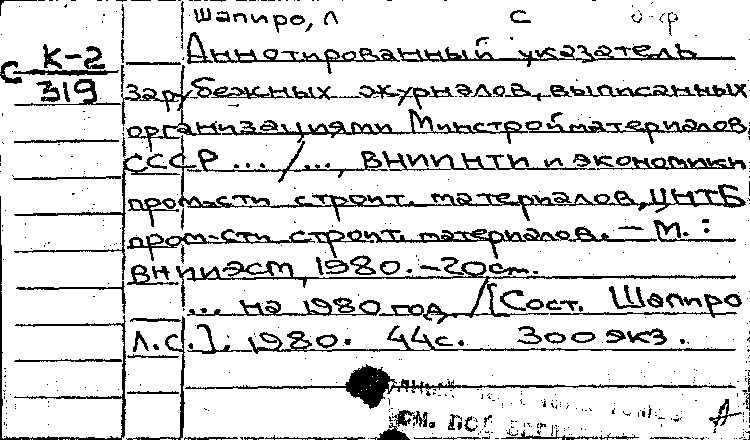 Шапиро, Л С
К-2 Аннотированный указатель
С 319 зарубежных журналов, выписанных
организациями Минстройматериалов
СССР ... /..., ВНИИНТИ и экономики
пром-сти строит. материалов, ЦНТБ
пром-сти строит. материалов. — М. :
ВНИИЭСМ, 1980. -20см.
... на 1980 год. /[Сост. Шапиро
Л.С.]. 1980. 44с. 300 экз.
см.